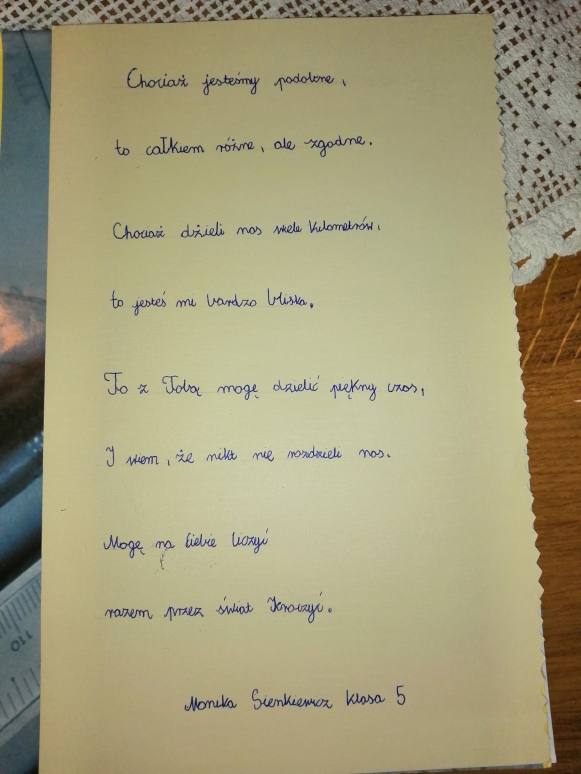 Chociaż jesteśmy podobne,
to całkiem różne, ale zgodne.
Chociaż dzieli nas wiele kilometrów,
to jesteś mi bardzo bliska.
To z Tobą mogę dzielić piękny czas,
I wiem, że nikt nie rozdzieli nas.
Mogę na Ciebie liczyć
razem przez świat kroczyć.
Monika Sienkiewicz klasa 5
110